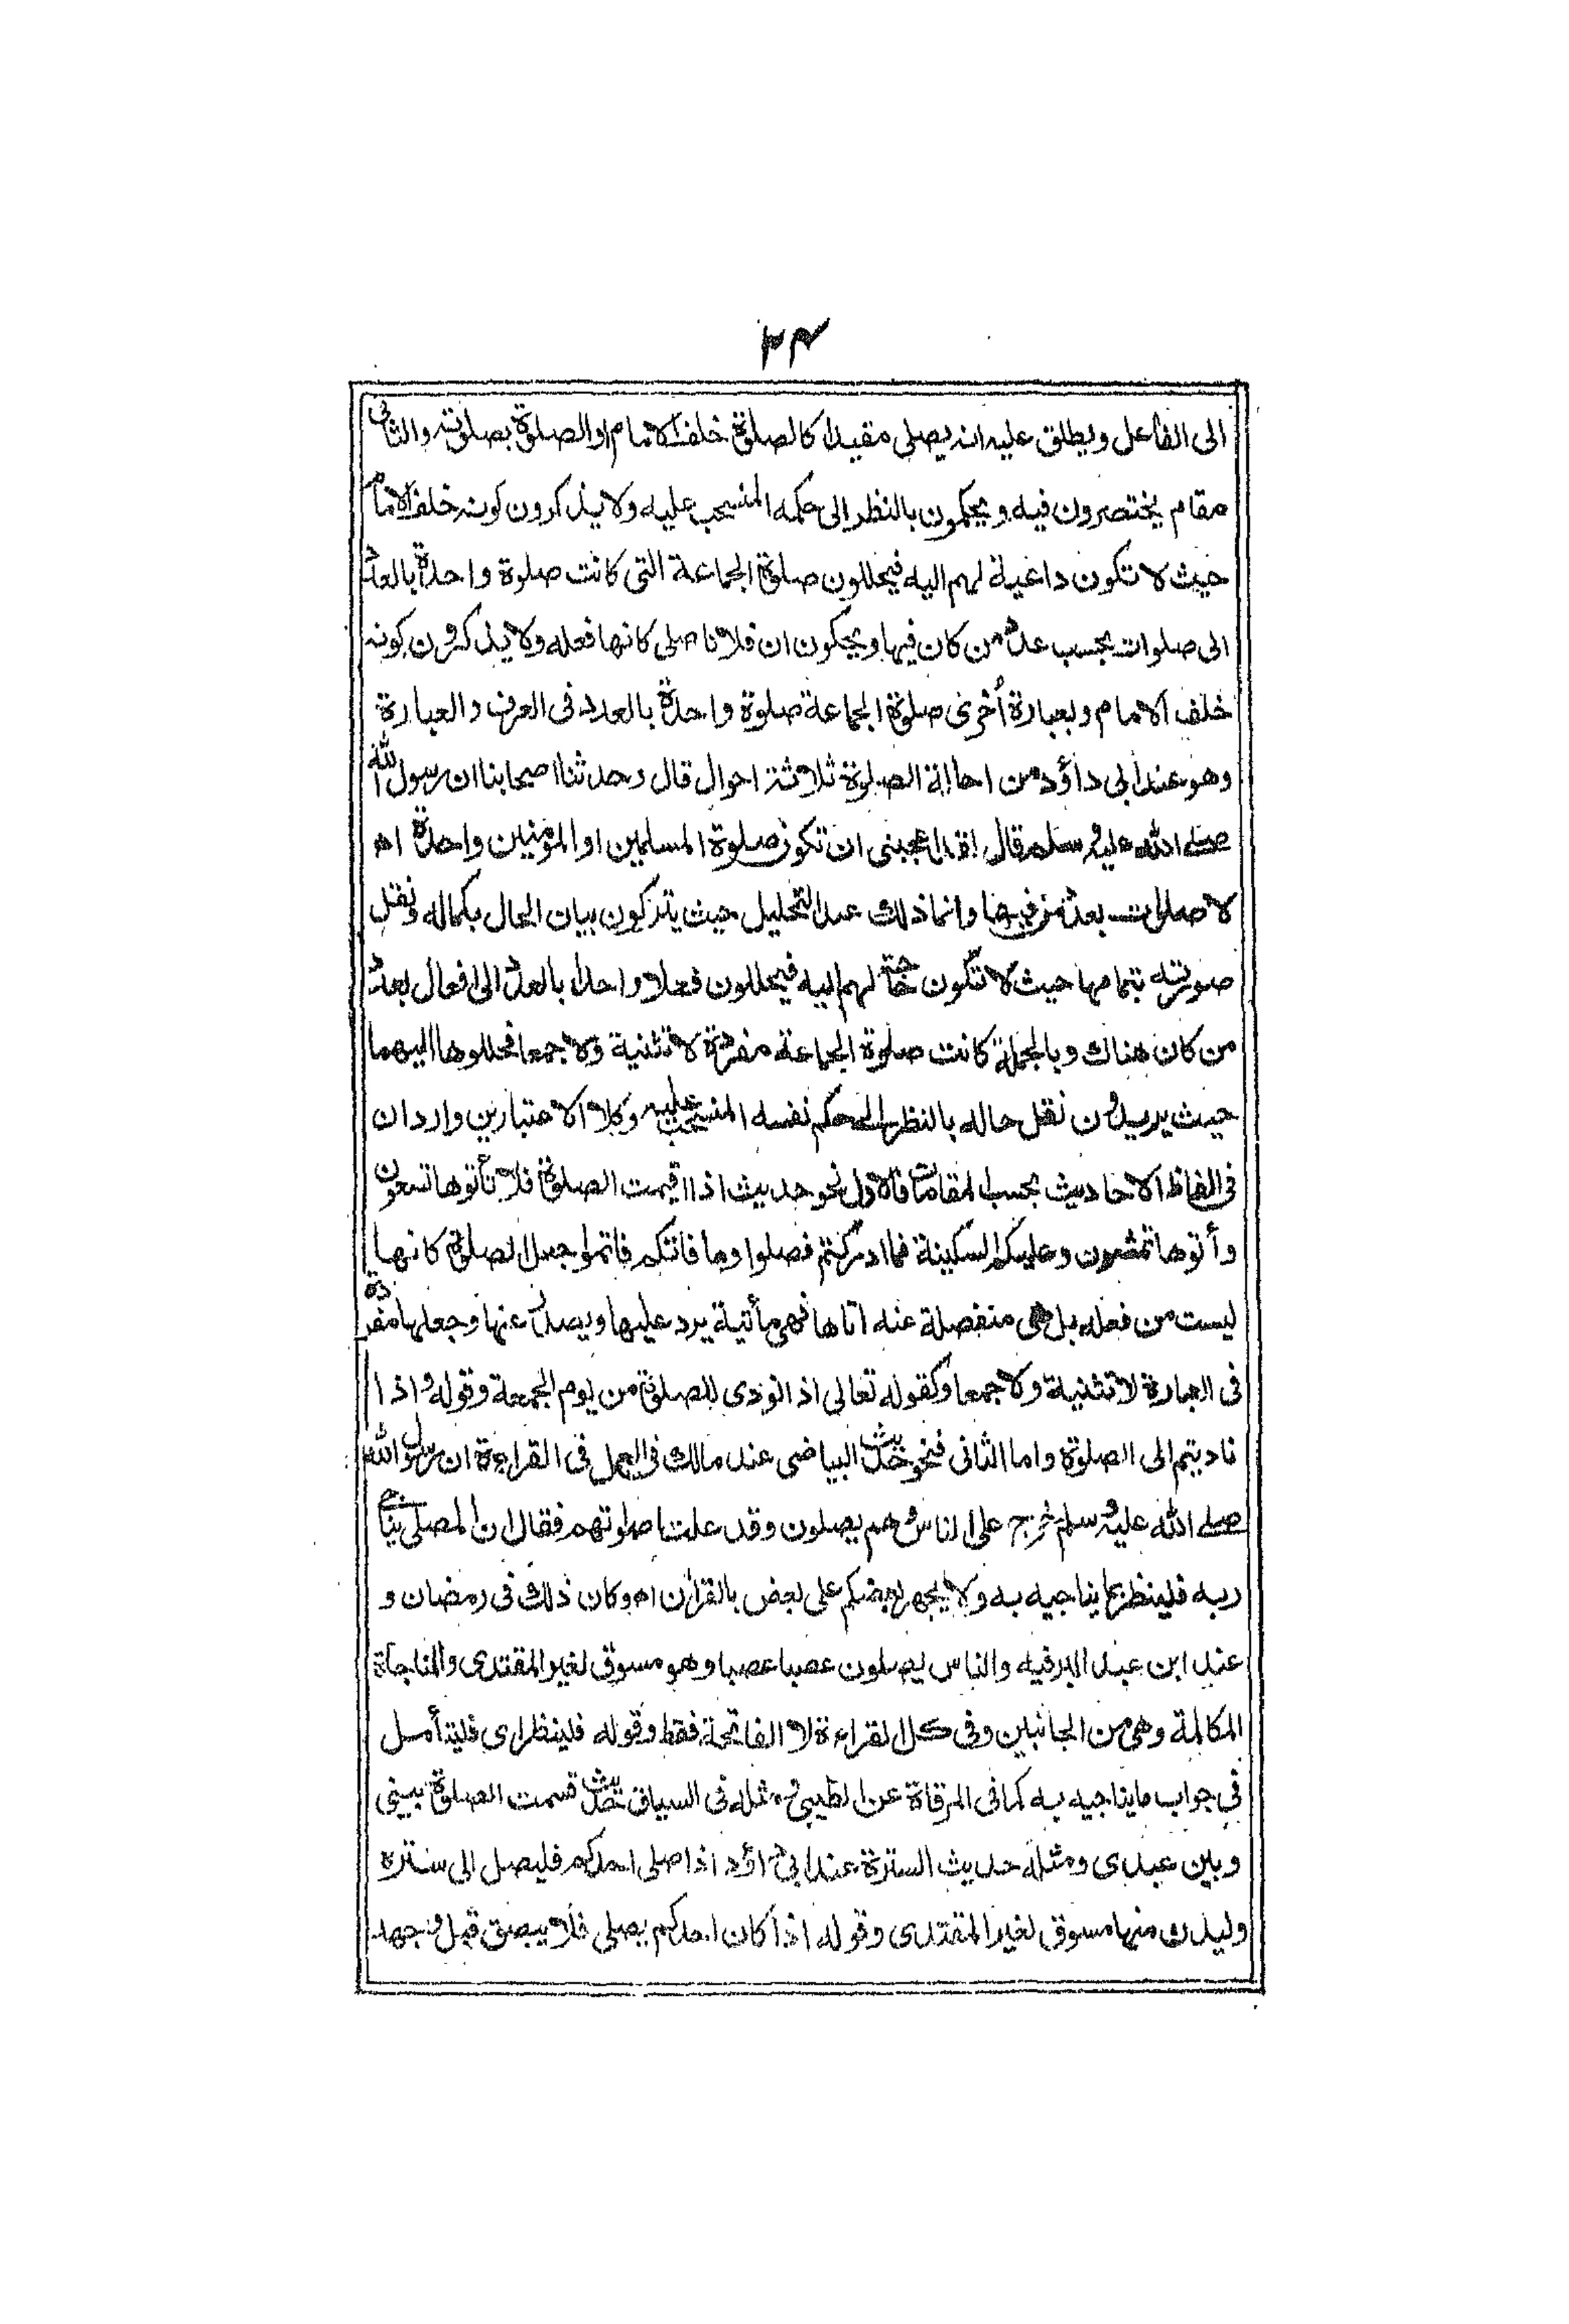 ٣٤
الى الفاعل ويطلق عليه انه يصلى مقيدا كالصلوة خلف الامام او الصلوة بصلوته والثانى
مقام يختصرون فيه ويحكمون بالنظر الى حكمه المنسحب عليه ولا يذكرون كونه خلف الامام
حيث لا تكون داعية لهم اليه فيحللون صلوة الجماعة التى كانت صلوة واحدة بالعدد
الى صلوات بحسب عدد من كان فيها ويحكون ان فلانا صلى كانها فعله ولا يذكرون كونه
خلف الامام وبعبارة أخرى صلوة الجماعة صلوة واحدة بالعدد فى العرف والعبارة
وهو عند ابى داؤد من احالة الصلوة ثلاثة احوال قال وحدثنا اصحابنا ان رسول الله
صلى الله عليه وسلم قال لقد اعجبنى ان تكون صلوة المسلمين او المؤمنين واحدة اه
لا صلوات بعدد من فيها وانما ذلك عند التحليل حيث يتركون بيان الحال بكماله ونقل
صورته بتمامها حيث لا تكون حاجة لهم اليه فيحللون فعلا واحدا بالعدد الى افعال بعدد
من كان هناك وبالجملة كانت صلوة الجماعة مفردة لا تثنية ولا جمعا فحللوها اليهما
حيث يريدون نقل حاله بالنظر الى حكم نفسه المنسحب عليه وكلا الاعتبارين واردان
فى الفاظ الاحاديث بحسب المقامات فالاول نحو حديث اذا اقيمت الصلوة فلا تأتوها تسعون
وأتوها تمشون وعليكم السكينة فما ادركتم فصلوا وما فاتكم فاتموا جعل الصلوة كانها
ليست من فعله بل هى منفصلة عنه اتاها فهى مأتية يرد عليها ويصدر عنها وجعلها مفردة
فى العبارة لا تثنية ولا جمعا وكقوله تعالى اذا نودى للصلوة من يوم الجمعة وقوله واذا
ناديتم الى الصلوة واما الثانى فنحو حديث البياضى عند مالك فى العمل فى القراءة ان رسول الله
صلى الله عليه وسلم خرج على الناس وهم يصلون وقد علت اصلوتهم فقال ان المصلى يناجى
ربه فلينظر بما يناجيه به ولا يجهر بعضكم على بعض بالقرآن اه وكان ذلك فى رمضان و
عند ابن عبد البر فيه والناس يصلون عصبا عصبا وهو مسوق لغير المقتدى والمناجاة
المكالمة وهى من الجانبين وفى كل القراءة لا الفاتحة فقط وقوله فلينظر اى فليتأمل
فى جواب ما يناجيه به كما فى المرقاة عن الطيبى ومثله فى السياق حديث قسمت الصلوة بينى
وبين عبدى ومثله حديث السترة عند ابى داؤد اذا صلى احدكم فليصل الى سترة
وليدن منها مسوق لغير المقتدى وقوله اذا كان احدكم يصلى فلا يبصق قبل وجهه